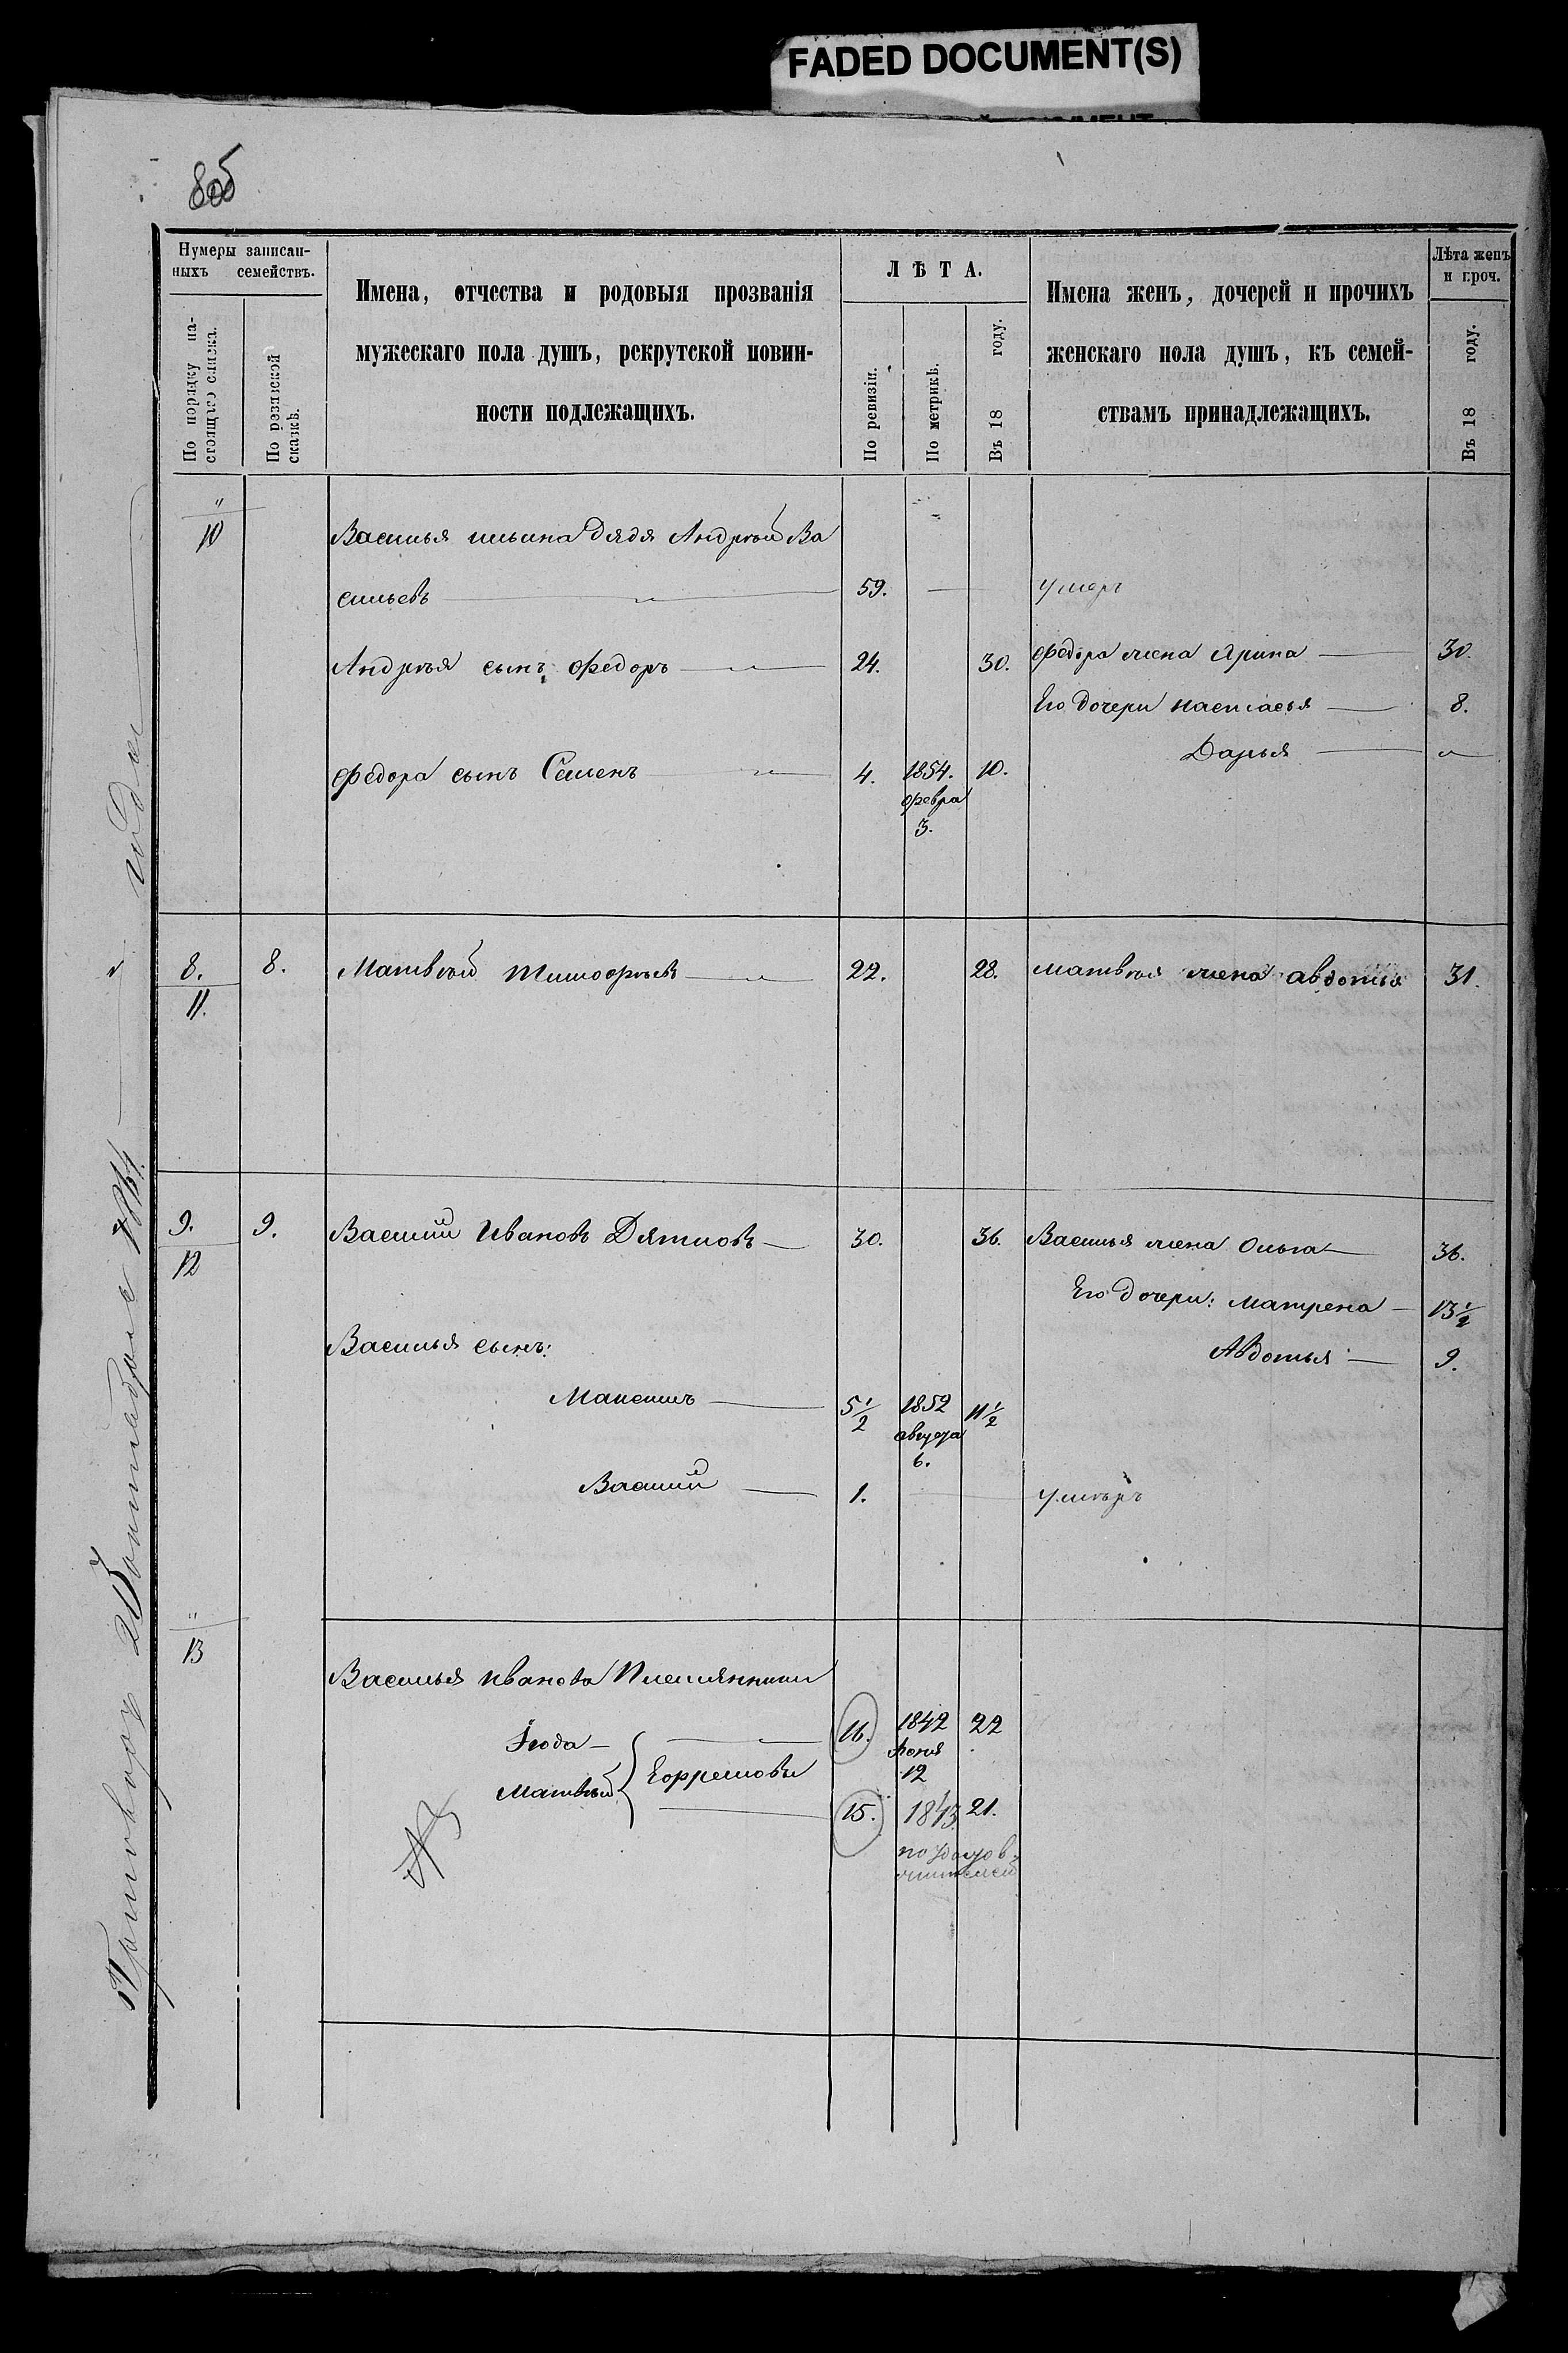 FADED DOCUMENT(S)
Нумеры записан-
ныхъ семействъ.
По порядку на-
стоящаго списка.
По ревизской
сказкѣ.
Имена, отчества и родовыя прозванія
мужескаго пола душъ, рекрутской повин-
ности подлежащихъ.
ЛѢТА.
По ревизіи.
По метрикѣ.
Въ 18 году.
Имена женъ, дочерей и прочихъ
женскаго пола душъ, къ семей-
ствамъ принадлежащихъ.
Лѣта женъ
и проч.
Въ 18 году.
"
10
Василья ильина дядя Андрѣй Ва
сильевъ — " — 59. — умеръ
Андрѣя сынъ Федоръ — " — 24. 30. Федора жена Арина — 30.
Его дочери настасья — 8.
Дарья — "
Федора сынъ Семенъ — " — 4. 1854. 10.
Февра
3.
8. 8. Матвѣй Тимофѣевъ — " 22. 28. Матвѣя жена авдотья 31.
11.
9. 9. Василій Ивановъ Дятловъ — 30. 36. Василья жена Ольга — 36.
12
Его дочери: Матрена — 13 1/2
Василья сынъ:
Авдотья — 9.
Максимъ — 5 1/2 1852 11 1/2
августа
6.
Василій — 1. — умѣръ
"
13
Василья иванова Племянники
16. 1842 22
Іюня
12
Матвѣй Ефремовы
15. 1843. 21.